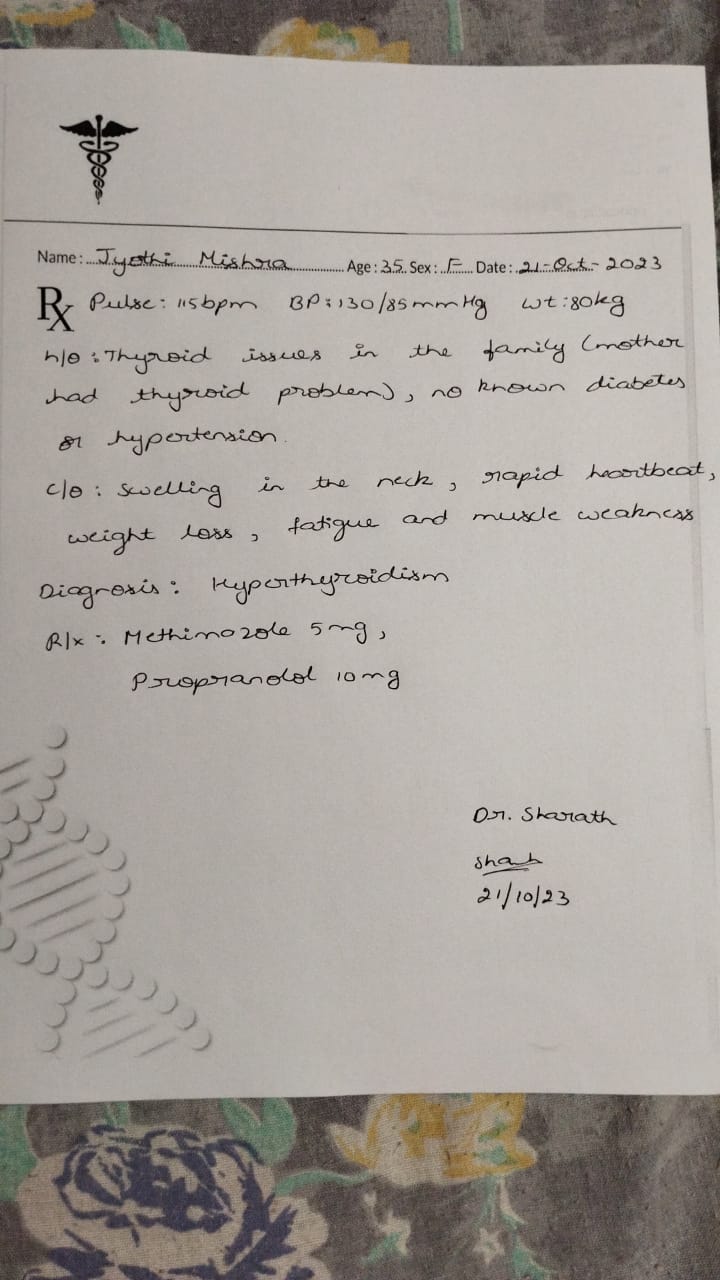 Name: Jyothi Mishra Age: 35 Sex: F Date: 21-Oct-2023
Rx Pulse: 115bpm BP: 130/85mmHg wt: 80kg
h/o: Thyroid issues in the family (mother
had thyroid problem), no known diabetes
or hypertension.
c/o: swelling in the neck, rapid heartbeat,
weight loss, fatigue and muscle weakness
Diagnosis: Hyperthyroidism
R/x: Methimazole 5mg,
Propranolol 10mg
Dr. Sharath
21/10/23